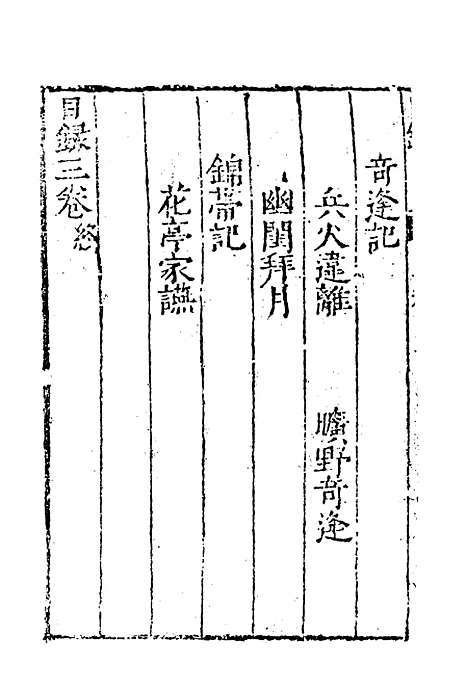 奇逢記
兵火違離　曠野奇逢
幽閨拜月
錦帶記
花亭家讌
目錄三卷終